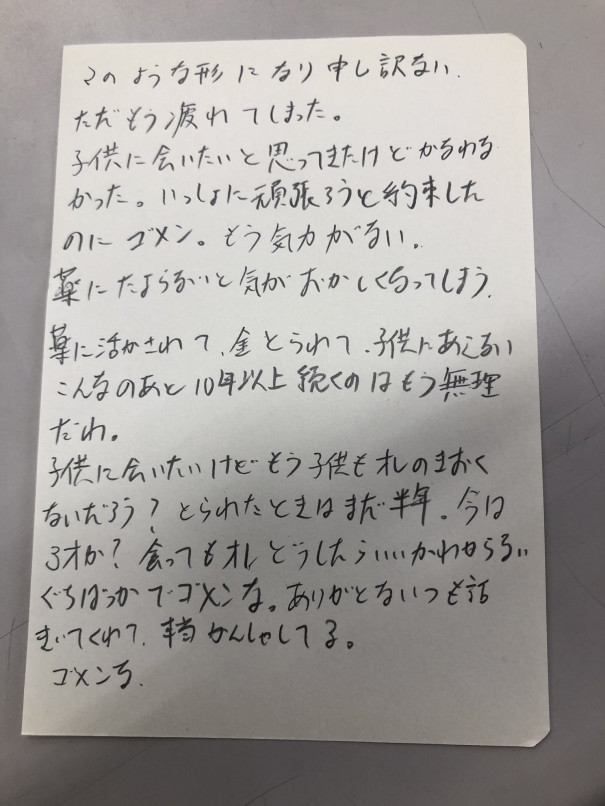 このような形になり申し訳ない.
ただもう疲れてしまった。
子供に会いたいと思ってきたけどかなわな
かった。いっしょに頑張ろうと約束した
のにゴメン。もう気力がない.
薬にたよらないと気がおかしくなってしまう.
薬に活かされて、金とられて、子供にあえない
こんなのあと10年以上続くのはもう無理
だわ。
子供に会いたいけどもう子供もオレのきおく
ないだろう?とられたときはまだ半年。今は
3才か?会ってもオレどうしたらいいかわからない
ぐちばっかでゴメンな。ありがとないつも話
きいてくれて、かんしゃしてる。
ゴメンな.